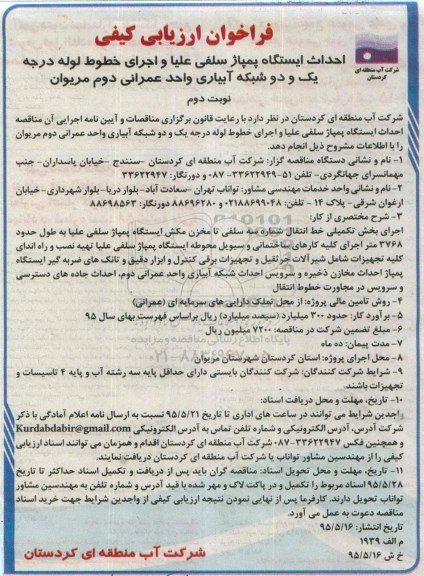 شرکت آب منطقه ای
کردستان
فراخوان ارزیابی کیفی
احداث ایستگاه پمپاژ سلفی علیا و اجرای خطوط لوله درجه
یک و دو شبکه آبیاری واحد عمرانی دوم مریوان
نوبت دوم
شرکت آب منطقه ای کردستان در نظر دارد با رعایت قانون برگزاری مناقصات و آیین نامه اجرایی آن مناقصه
احداث ایستگاه پمپاژ سلفی علیا و اجرای خطوط لوله درجه یک و دو شبکه آبیاری واحد عمرانی دوم مریوان
را با اطلاعات مشروح ذیل انجام دهد.
۱- نام و نشانی دستگاه مناقصه گزار: شرکت آب منطقه ای کردستان -سنندج -خیابان پاسداران- جنب
مهمانسرای جهانگردی- تلفن ۵۱-۳۳۶۲۲۹۴۹-۰۸۷ و دورنگار: ۳۳۶۲۲۹۴۷
۲- نام و نشانی واحد خدمات مهندسی مشاور: تواناب تهران -سعادت آباد- بلوار دریا- بلوار شهرداری- خیابان
ارغوان شرقی- پلاک ۱۴ - تلفن: ۴۸-۰۲۱۸۸۶۹۹۰ و ۸۸۶۹۶۲۸۰ دورنگار: ۸۸۶۹۸۵۶۳
۳- شرح مختصری از کار:
اجرای بخش تکمیلی خط انتقال شماره سه سلفی تا مخزن مکش ایستگاه پمپاژ سلفی علیا به طول حدود
۳۷۶۸ متر اجرای کلیه کارهای ساختمانی و سیویل محوطه ایستگاه پمپاژ سلفی علیا تهیه نصب و راه اندای
کلیه تجهیزات شامل شیرآلات جرثقیل و تجهیزات برقی کنترل و ابزار دقیق و تانک های ضربه گیر ایستگاه
پمپاژ احداث مخازن ذخیره و سرویس احداث شبکه آبیاری واحد عمرانی دوم، احداث جاده های دسترسی
و سرویس در مجاورت خطوط انتقال
۴- روش تامین مالی پروژه: از محل تملک دارایی های سرمایه ای (عمرانی)
۵- برآورد کار: حدود ۳۰۰ میلیارد (سیصد میلیارد) ریال براساس فهرست بهای سال ۹۵
۶- مبلغ تضمین شرکت در مناقصه: ۷۲۰۰ میلیون ریال
۷- مدت پیمان: ده ماه
۸- محل اجرای پروژه: استان کردستان شهرستان مریوان
۹- شرایط شرکت کنندگان: شرکت کنندگان بایستی دارای حداقل پایه سه رشته آب و پایه ۴ تاسیسات و
تجهیزات باشند.
۱۰- تاریخ، مهلت و محل دریافت اسناد:
واجدین شرایط می توانند در ساعت های اداری تا تاریخ ۹۵/۵/۲۱ نسبت به ارسال نامه اعلام آمادگی با ذکر
شرکت آدرس، آدرس الکترونیکی و شماره تلفن تماس به آدرس الکترونیکی Kurdabdabir@gmail.com
و همچنین فکس ۳۳۶۲۲۹۴۷-۰۸۷ شرکت آب منطقه ای کردستان اقدام و همزمان می توانند اسناد ارزیابی
کیفی را از مهندسین مشاور تواناب یا شرکت آب منطقه ای کردستان دریافت نمایند.
۱۱- تاریخ، مهلت و محل تحویل اسناد: مناقصه گران باید پس از دریافت و تکمیل اسناد حداکثر تا تاریخ
۹۵/۵/۲۸ اسناد مربوط را تکمیل و در پاکت لاک و مهر شده با قید آدرس و شماره تلفن به مهندسین مشاور
تواناب تحویل دارند. کارفرما پس از نهایی نمودن نتیجه ارزیابی کیفی از واجدین شرایط جهت خرید اسناد
مناقصه دعوت به عمل می آورد.
تاریخ انتشار: ۹۵/۵/۱۶
م الف ۱۹۳۹
خ ش ۹۵/۵/۱۶
شرکت آب منطقه ای کردستان